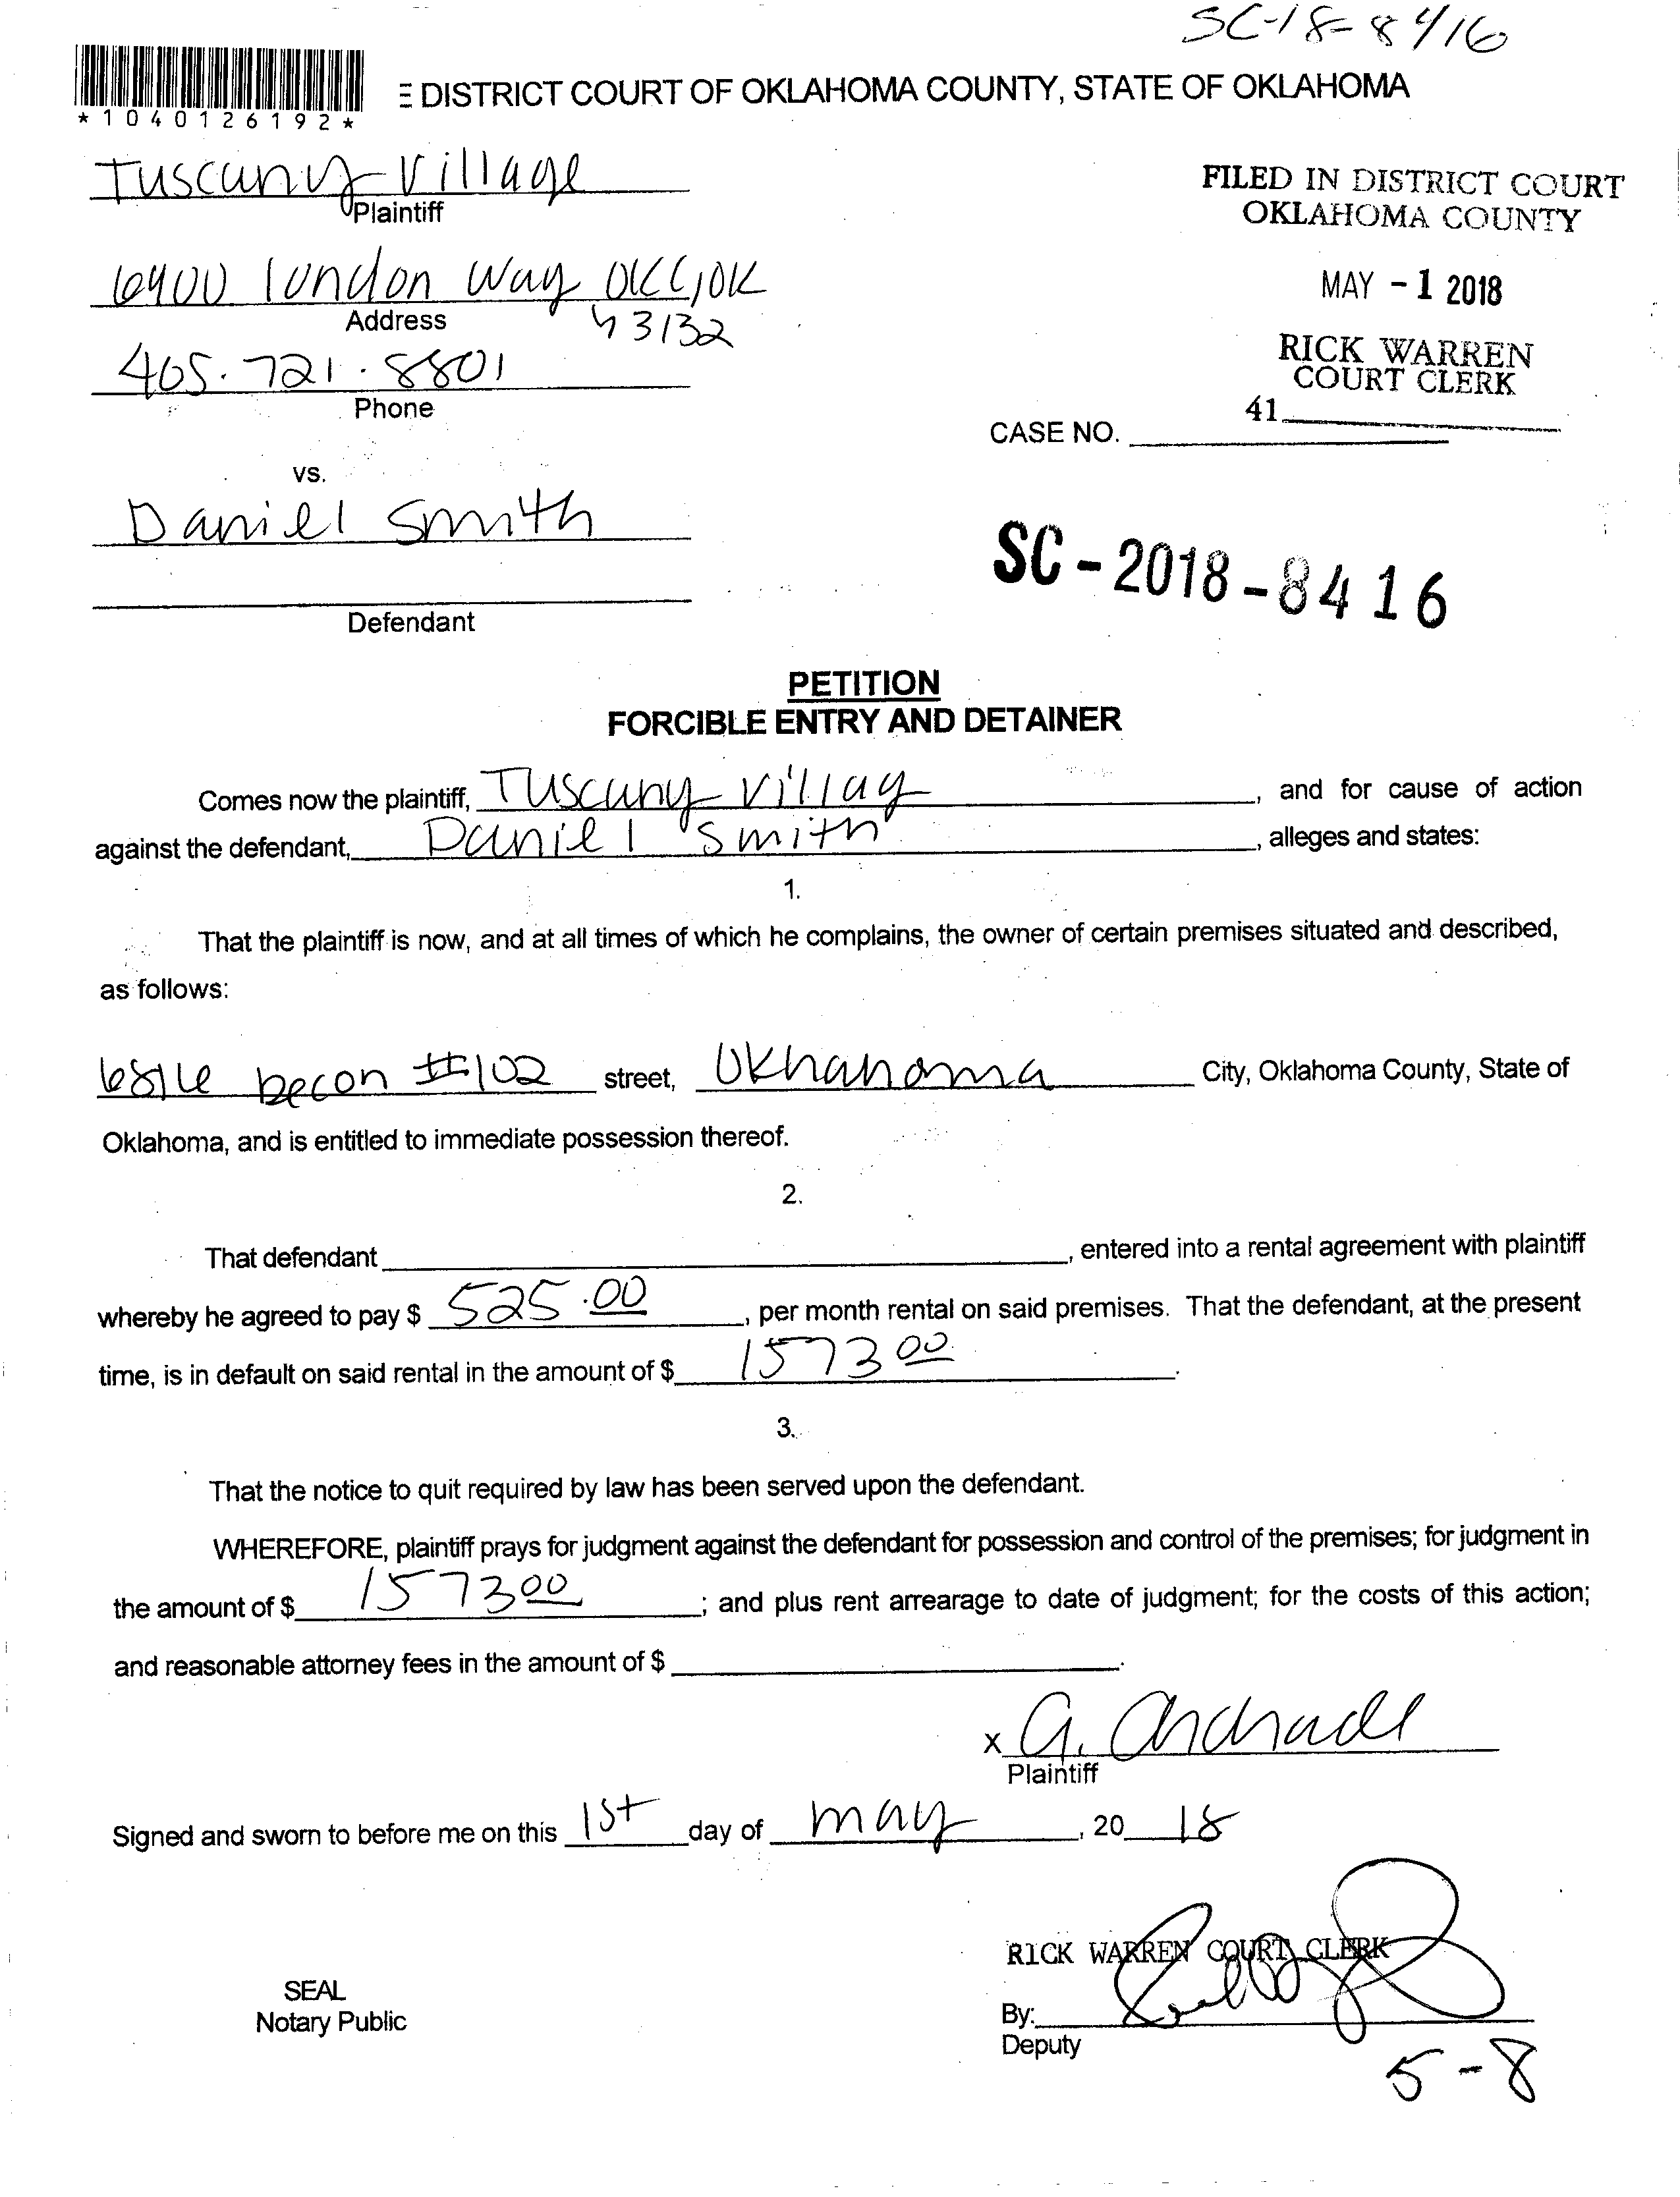 SC-18-8416
*1040126192*
E DISTRICT COURT OF OKLAHOMA COUNTY, STATE OF OKLAHOMA
Tuscany Village
Plaintiff
FILED IN DISTRICT COURT
OKLAHOMA COUNTY
6900 london Way OKC, OK
Address
73132
MAY - 1 2018
405.721.8801
Phone
RICK WARREN
COURT CLERK
41
CASE NO.
vs.
Daniel Smith
Defendant
SC - 2018 - 8416
PETITION
FORCIBLE ENTRY AND DETAINER
Comes now the plaintiff, Tuscany Villag, and for cause of action
against the defendant, Daniel Smith, alleges and states:
1.
That the plaintiff is now, and at all times of which he complains, the owner of certain premises situated and described,
as follows:
becon #102 street, City, Oklahoma County, State of
Oklahoma, and is entitled to immediate possession thereof.
2.
That defendant , entered into a rental agreement with plaintiff
whereby he agreed to pay $ 525.00, per month rental on said premises. That the defendant, at the present
time, is in default on said rental in the amount of $ 1573 00.
3.
That the notice to quit required by law has been served upon the defendant.
WHEREFORE, plaintiff prays for judgment against the defendant for possession and control of the premises; for judgment in
the amount of $ 1573 00; and plus rent arrearage to date of judgment; for the costs of this action;
and reasonable attorney fees in the amount of $ .
x G. Andrade
Plaintiff
Signed and sworn to before me on this 1st day of may, 20 18
RICK WARREN COURT CLERK
SEAL
Notary Public
By:
Deputy
5-8